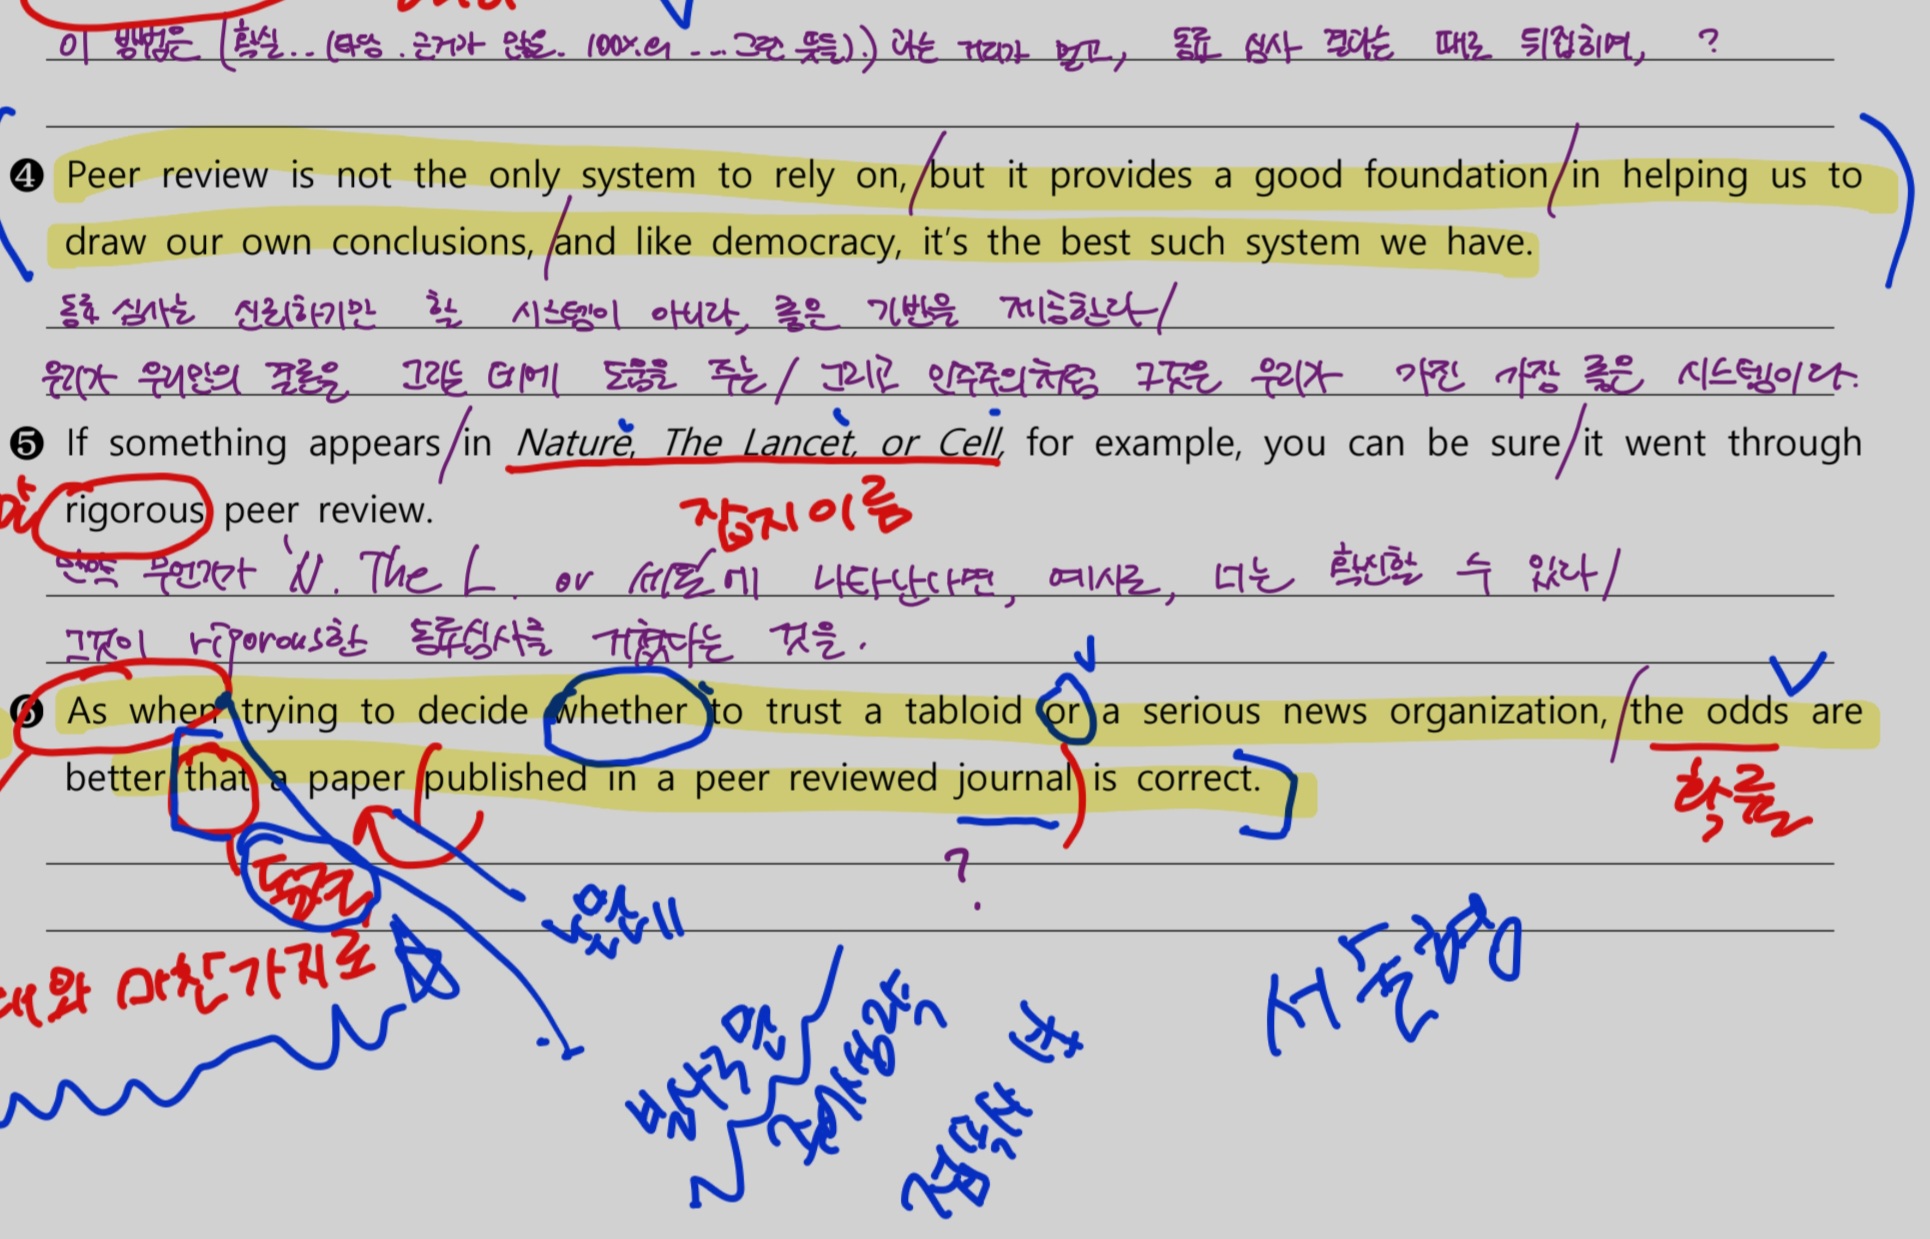 이 방법은 (확실..(타당.근거가 않은. 100%의 ... 그런 뜻들).)과는 거리가 멀고, 동료 심사 결과는 때로 뒤집히며, ?
❹ Peer review is not the only system to rely on, but it provides a good foundation in helping us to
draw our own conclusions, and like democracy, it's the best such system we have.
동료 심사는 신뢰하기만 할 시스템이 아니라, 좋은 기반을 제공한다/
우리가 우리만의 결론을 그리는 데에 도움을 주는/ 그리고 민주주의처럼 그것은 우리가 가진 가장 좋은 시스템이다.
❺ If something appears in Nature, The Lancet, or Cell, for example, you can be sure it went through
rigorous peer review.
잡지이름
만약 무언가가 N. The L. or 세포에 나타난다면, 예시로, 너는 확신할 수 있다/
그것이 rigorous한 동료심사를 거쳤다는 것을.
❻ As when trying to decide whether to trust a tabloid or a serious news organization, the odds are
better that a paper published in a peer reviewed journal is correct.
확률
?
동격
와 마찬가지로
분사구문
주어생략
접속사
서술형